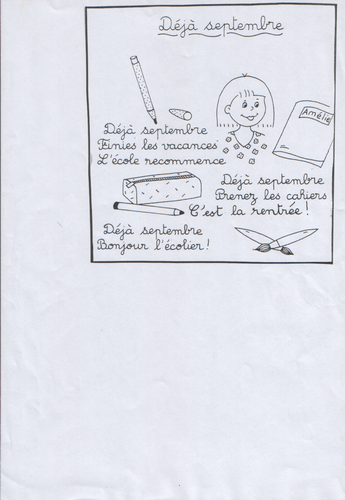 Déjà septembre
Amélie
Déjà septembre
Finies les vacances
L'école recommence
Déjà septembre
Prenez les cahiers
C'est la rentrée!
Déjà septembre
Bonjour l'écolier!